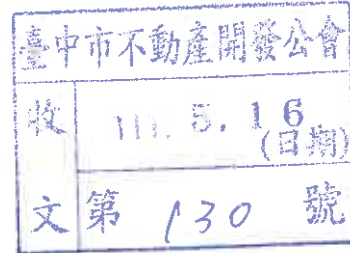 臺中市不動產開發公會
收 111. 5. 16
(日期)
文 第 130 號